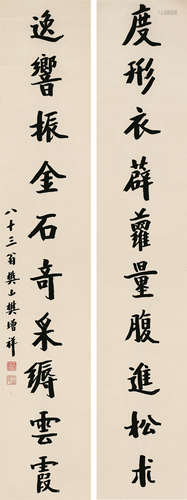 度形衣薜蘿量腹進松朮
逸響振金石奇采縟雲霞
八十三翁樊山樊增祥